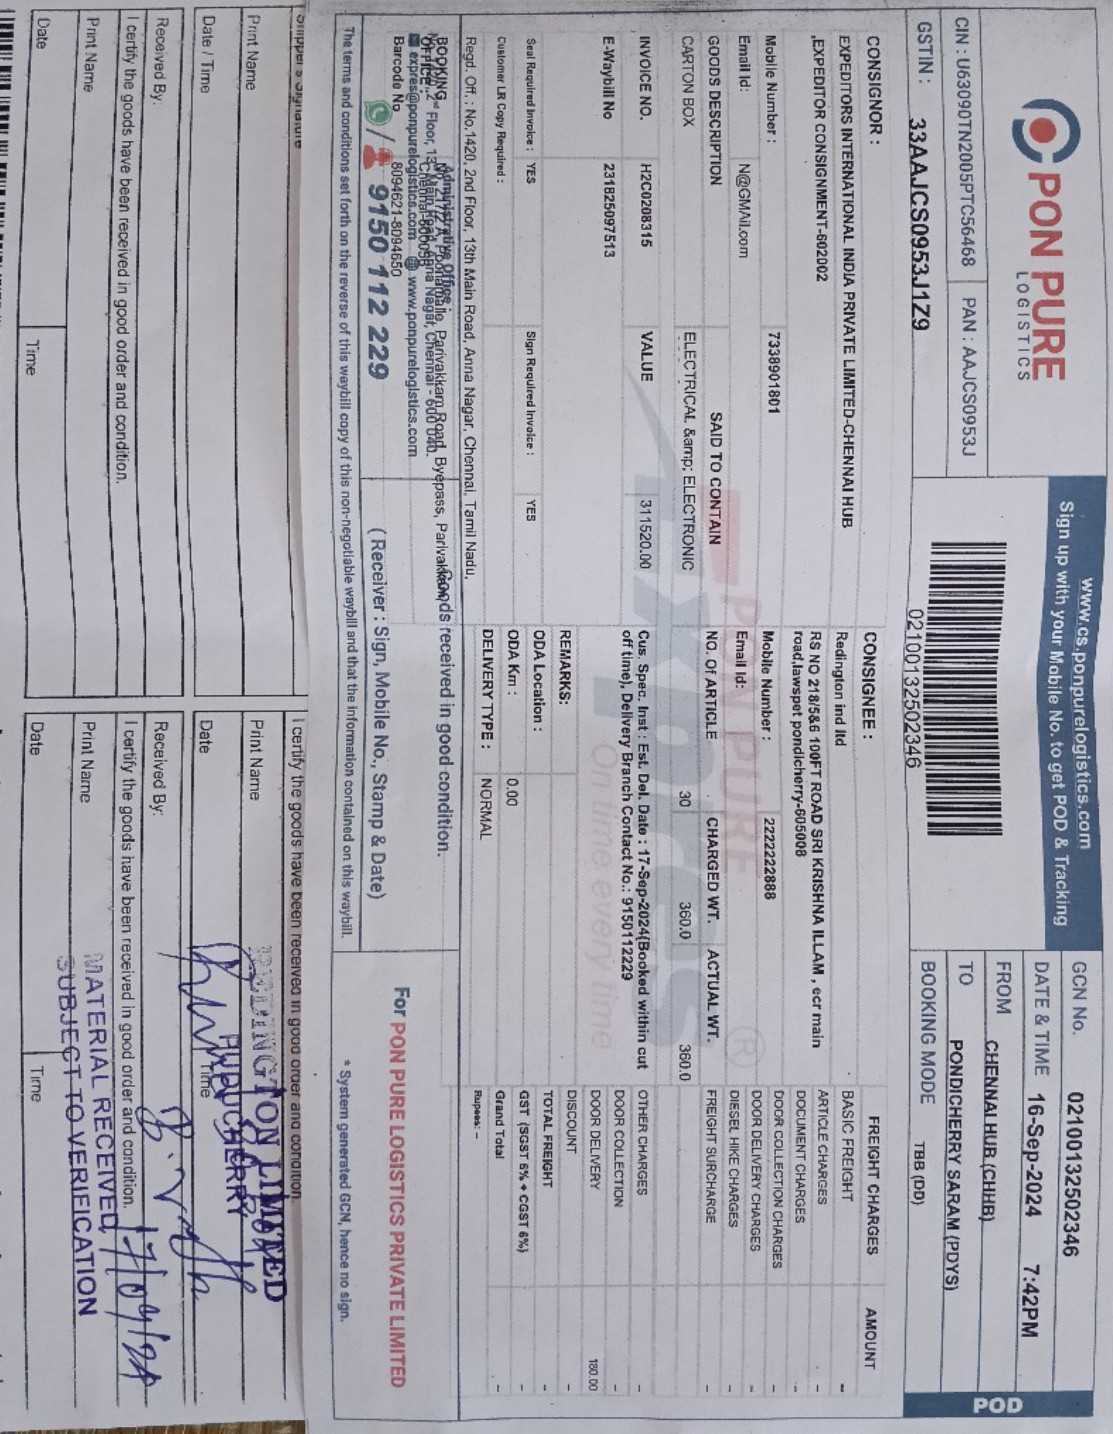 PON PURE
LOGISTICS
www.cs.ponpurelogistics.com
Sign up with your Mobile No. to get POD & Tracking
GCN No. 02100132502346
DATE & TIME 16-Sep-2024 7:42PM
CIN : U63090TN2005PTC56468 PAN : AAJCS0953J
FROM CHENNAI HUB (CHHB)
TO PONDICHERRY SARAM (PDYS)
GSTIN : 33AAJCS0953J1Z9
02100132502346
BOOKING MODE TBB (DD)
POD
CONSIGNOR :
EXPEDITORS INTERNATIONAL INDIA PRIVATE LIMITED-CHENNAI HUB
,EXPEDITOR CONSIGNMENT-602002
Mobile Number : 7338901801
Email Id: N@GMAil.com
CONSIGNEE :
Redington ind ltd
RS NO 218/5&6 100FT ROAD SRI KRISHNA ILLAM , ecr main
road,lawspet pondicherry-605008
Mobile Number : 2222222888
Email Id:
GOODS DESCRIPTION SAID TO CONTAIN NO. Of ARTICLE CHARGED WT. ACTUAL WT.
CARTON BOX ELECTRICAL &amp; ELECTRONIC 30 360.0 360.0
INVOICE NO. H2C0208315 VALUE 311520.00
E-Waybill No 231825097513
Cus. Spec. Inst : Est. Del. Date : 17-Sep-2024(Booked within cut
off time), Delivery Branch Contact No.: 9150112229
REMARKS:
Seal Required Invoice : YES Sign Required Invoice : YES
ODA Location :
Customer LR Copy Required :
ODA Km : 0.00
DELIVERY TYPE : NORMAL
FREIGHT CHARGES AMOUNT
BASIC FREIGHT --
ARTICLE CHARGES --
DOCUMENT CHARGES --
DOOR COLLECTION CHARGES --
DOOR DELIVERY CHARGES --
DIESEL HIKE CHARGES --
FREIGHT SURCHARGE --
OTHER CHARGES --
DOOR COLLECTION --
DOOR DELIVERY 180.00
DISCOUNT --
TOTAL FREIGHT --
GST (SGST 6% + CGST 6%) --
Grand Total --
Rupees: --
PON PURE
Expres
®
On time every time
Regd. Off. : No.1420, 2nd Floor, 13th Main Road, Anna Nagar, Chennai, Tamil Nadu,
BOOKING
OFFICE:
Administrative Office :
Poonamalle, Parivakkam Road, Byepass, Parivakkam,
Floor, 13th Main Road, Anna Nagar, Chennai - 600 040.
expres@ponpurelogistics.com www.ponpurelogistics.com
Barcode No 8094621-8094650
/ 9150 112 229
Goods received in good condition.
( Receiver : Sign, Mobile No., Stamp & Date)
For PON PURE LOGISTICS PRIVATE LIMITED
The terms and conditions set forth on the reverse of this waybill copy of this non-negotiable waybill and that the information contained on this waybill.
* System generated GCN, hence no sign.
Shipper's Signature
Print Name
Date / Time
Received By:
I certify the goods have been received in good order and condition.
Print Name
Date Time
I certify the goods have been received in good order and condition.
Print Name
Date Time
REDINGTON LIMITED
PUDUCHERRY
Received By:
I certify the goods have been received in good order and condition.
17/09/24
Print Name
MATERIAL RECEIVED,
SUBJECT TO VERIFICATION
Date Time